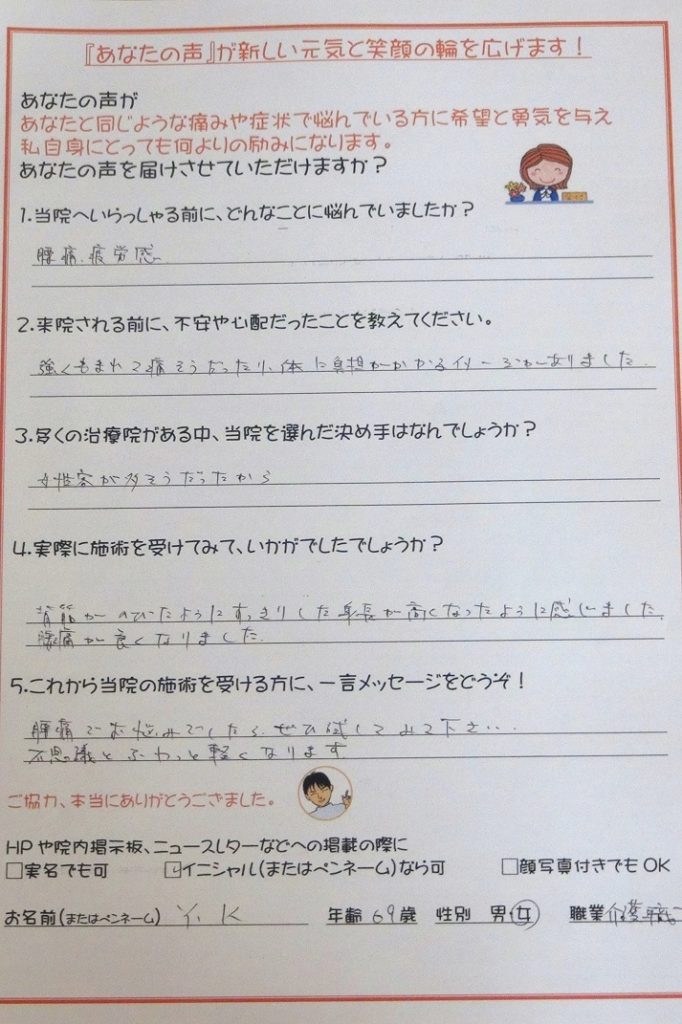 『あなたの声』が新しい元気と笑顔の輪を広げます！
あなたの声が
あなたと同じような痛みや症状で悩んでいる方に希望と勇気を与え
私自身にとっても何よりの励みになります。
あなたの声を届けさせていただけますか？
1.当院へいらっしゃる前に、どんなことに悩んでいましたか？
腰痛、疲労感
2.来院される前に、不安や心配だったことを教えてください。
強くもまれて痛そうだったり、体に負担がかかるイメージがありました。
3.多くの治療院がある中、当院を選んだ決め手はなんでしょうか？
女性客が多そうだったから
4.実際に施術を受けてみて、いかがでしたでしょうか？
背筋がのびたようにすっきりした 身長が高くなったように感じました。
腰痛が良くなりました。
5.これから当院の施術を受ける方に、一言メッセージをどうぞ！
腰痛でお悩みでしたら、ぜひ試してみて下さい…
不思議とふわっと軽くなります
ご協力、本当にありがとうございました。
HPや院内掲示板、ニュースレターなどへの掲載の際に
□実名でも可 ☑イニシャル(またはペンネーム)なら可 □顔写真付きでもOK
お名前(またはペンネーム) Y. K 年齢 69歳 性別 男・女 職業 介護職